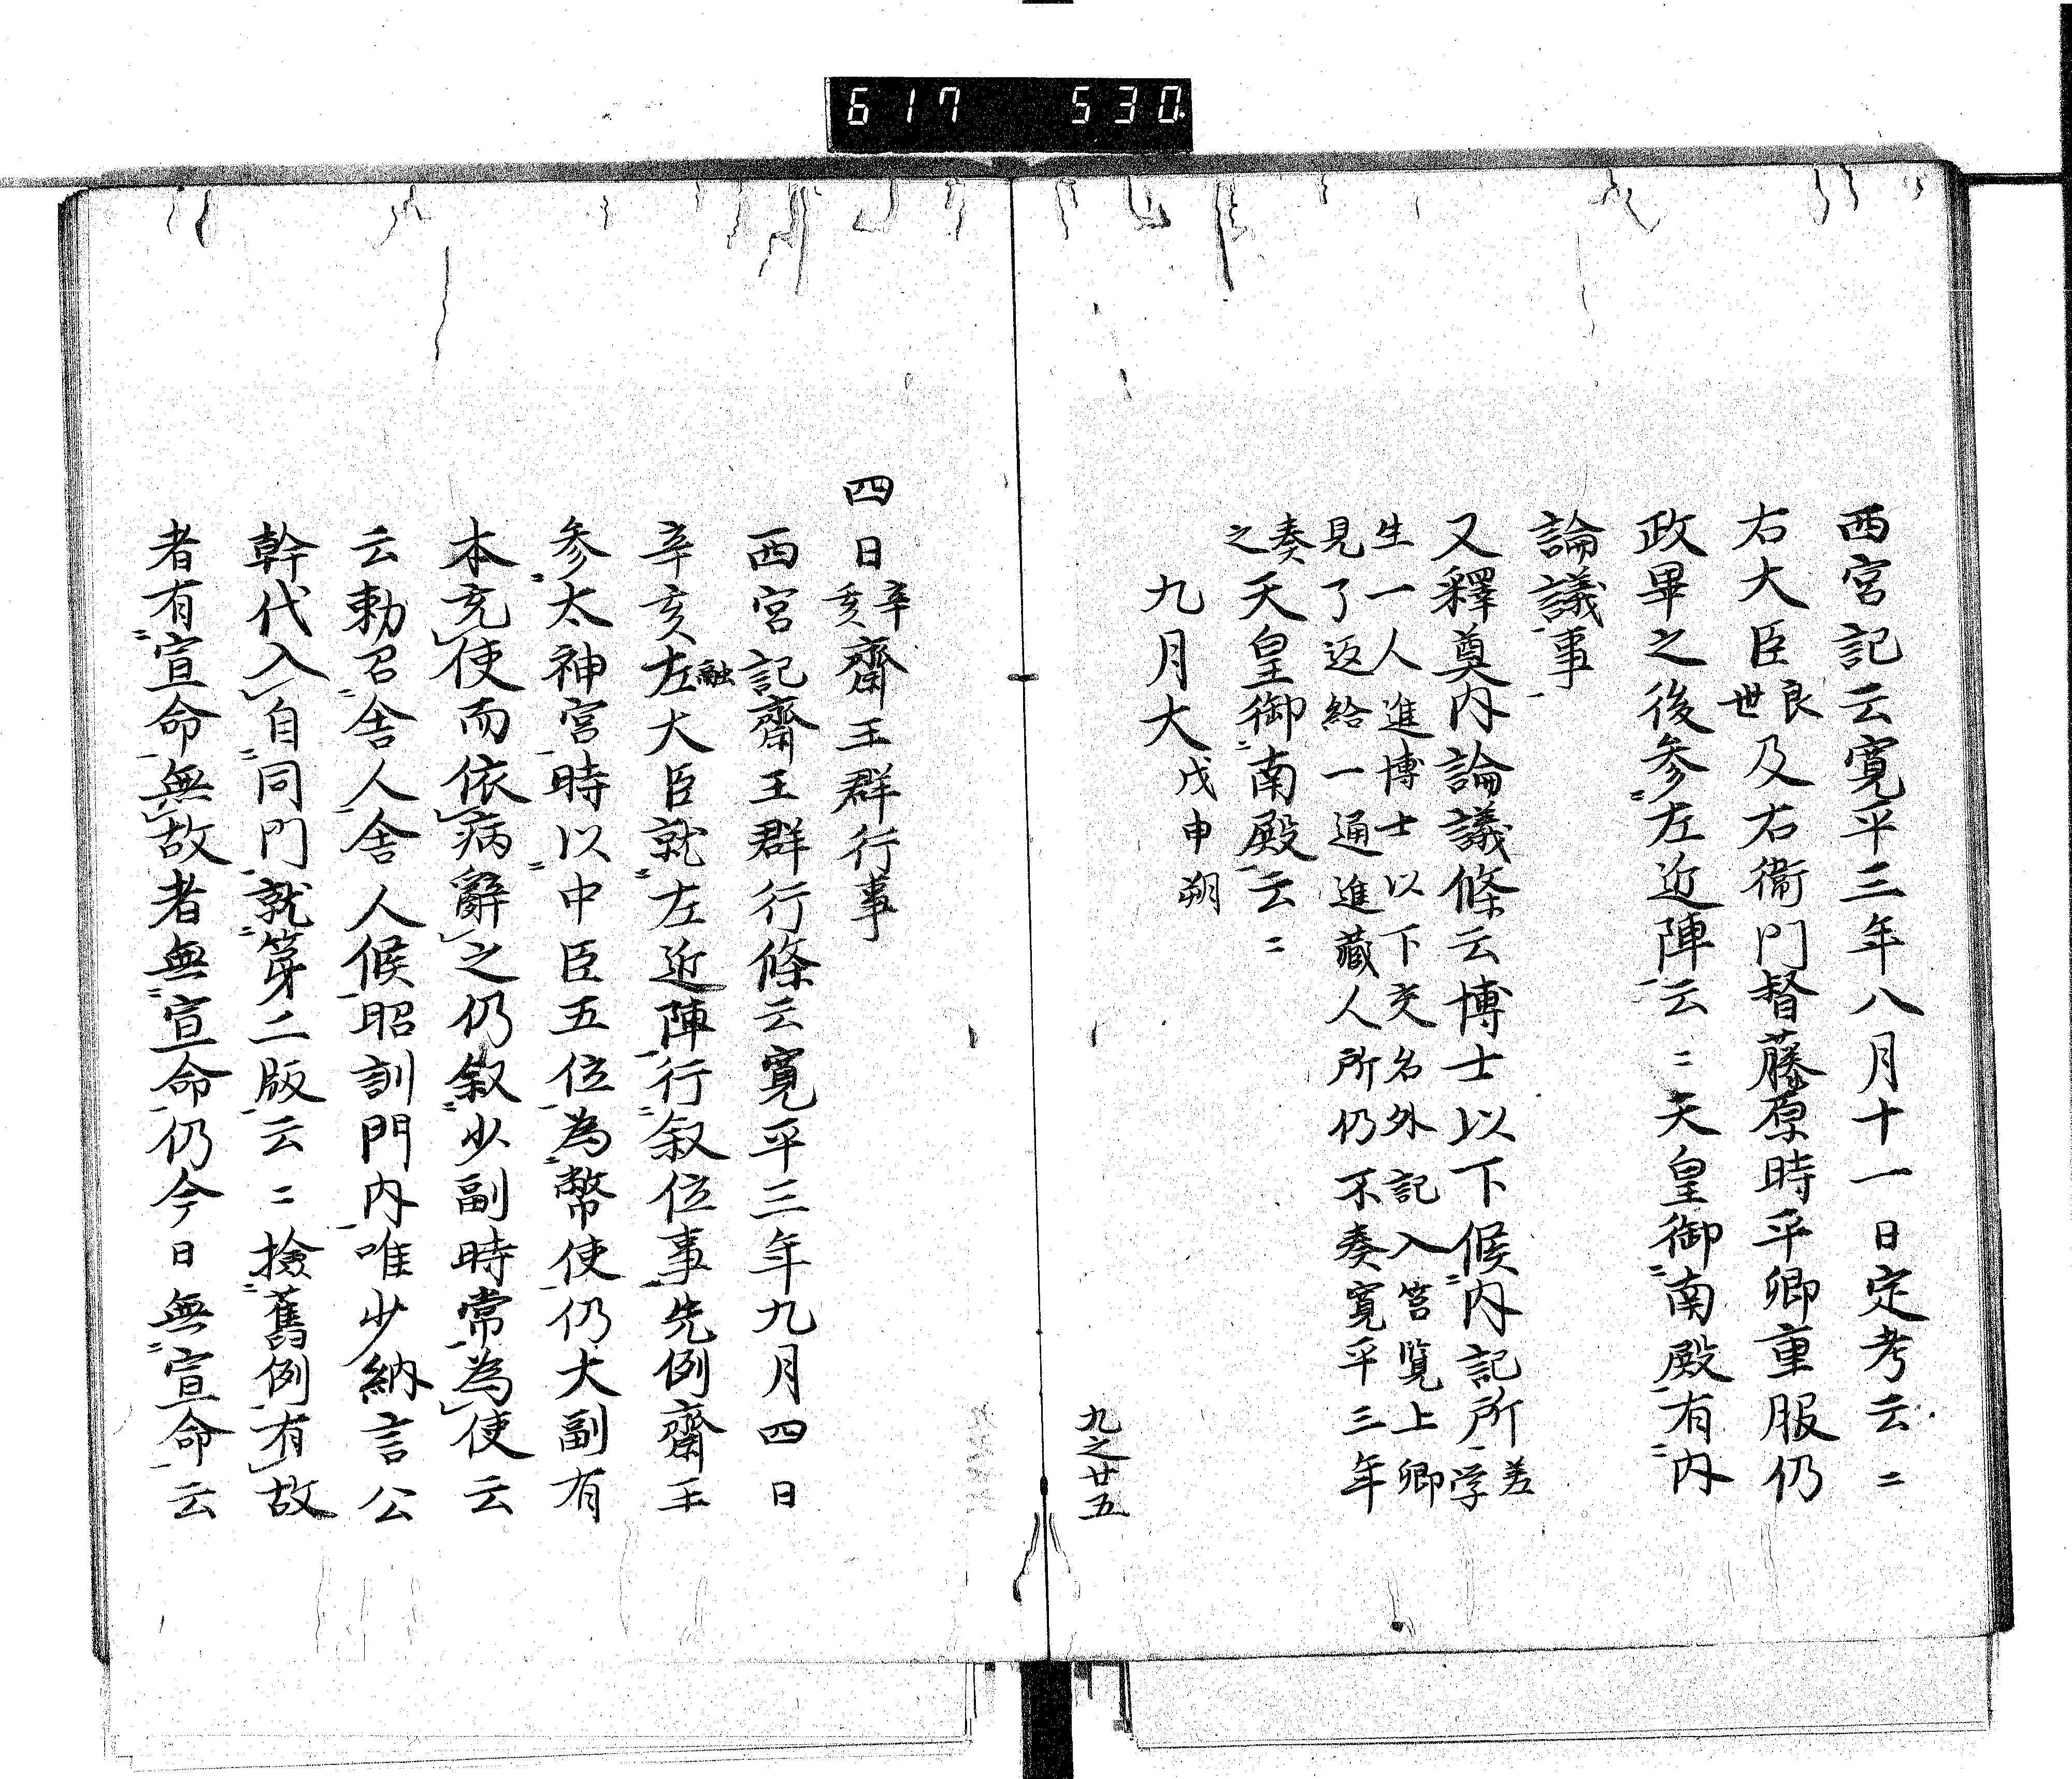 617 530
西宮記云寛平三年八月十一日定考云〻
右大臣良世及右衞門督藤原時平卿重服仍
政畢之後参左近陣云〻天皇御南殿有内
論議事
又釋奠内論議條云博士以下候内記所差学
生一人進博士以下交名外記入筥覧上卿
見了返給一通進藏人所仍不奏寛平三年
奏之天皇御南殿云〻
九月大戊申朔
九之廿五
四日辛亥齋王群行事
西宮記齋王群行條云寛平三年九月四日
辛亥左大臣融就左近陣行叙位事先例齋王
参太神宮時以中臣五位為幣使仍大副有
本充使而依病辭之仍叙少副時常為使云
云勅召舎人舎人候昭訓門内唯少納言公
幹代入自同門就第二版云〻撿舊例有故
者有宣命無故者無宣命仍今日無宣命云